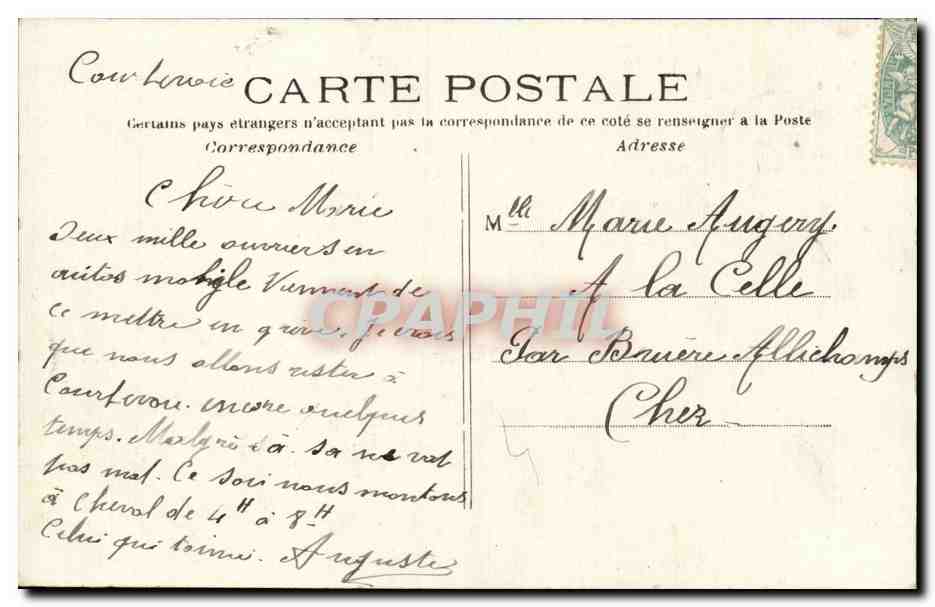 Courbevoie
CARTE POSTALE
Certains pays etrangers n'acceptant pas la correspondance de ce coté se renseigner a la Poste
Correspondance
Adresse
Chère Marie
Deux mille ouvriers en
autos mobile Viennent de
ce mettre en grève. Je crois
que nous allons rester à
Courbevoie. encore quelques
temps. Malgré sà. sa ne vat
pas mal. Ce soir nous montons
à cheval de 4H à 8H
Celui qui t'aime. Auguste
Mlle Marie Augery.
A la Celle
Par Bruère Allichamps
Cher
CPAPHIL